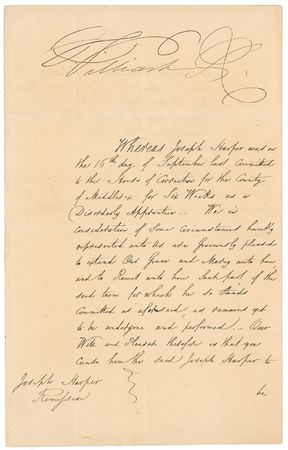 William R.
Whereas Joseph Harper was on
the 16th day of September last committed
to the House of Correction for the County
of Middlesex for Six Weeks as a
Disorderly Apprentice.- We in
consideration of Some Circumstances humbly
represented unto Us are Graciously pleased
to extend Our Grace and Mercy unto him
and to Remit unto him Such part of the
said term for which he so Stands
Committed as aforesaid, as remains yet
to be undergone and performed.- Our
Will and Pleasure therefore is that you
Cause him the said Joseph Harper to
be
Joseph Harper
Remission